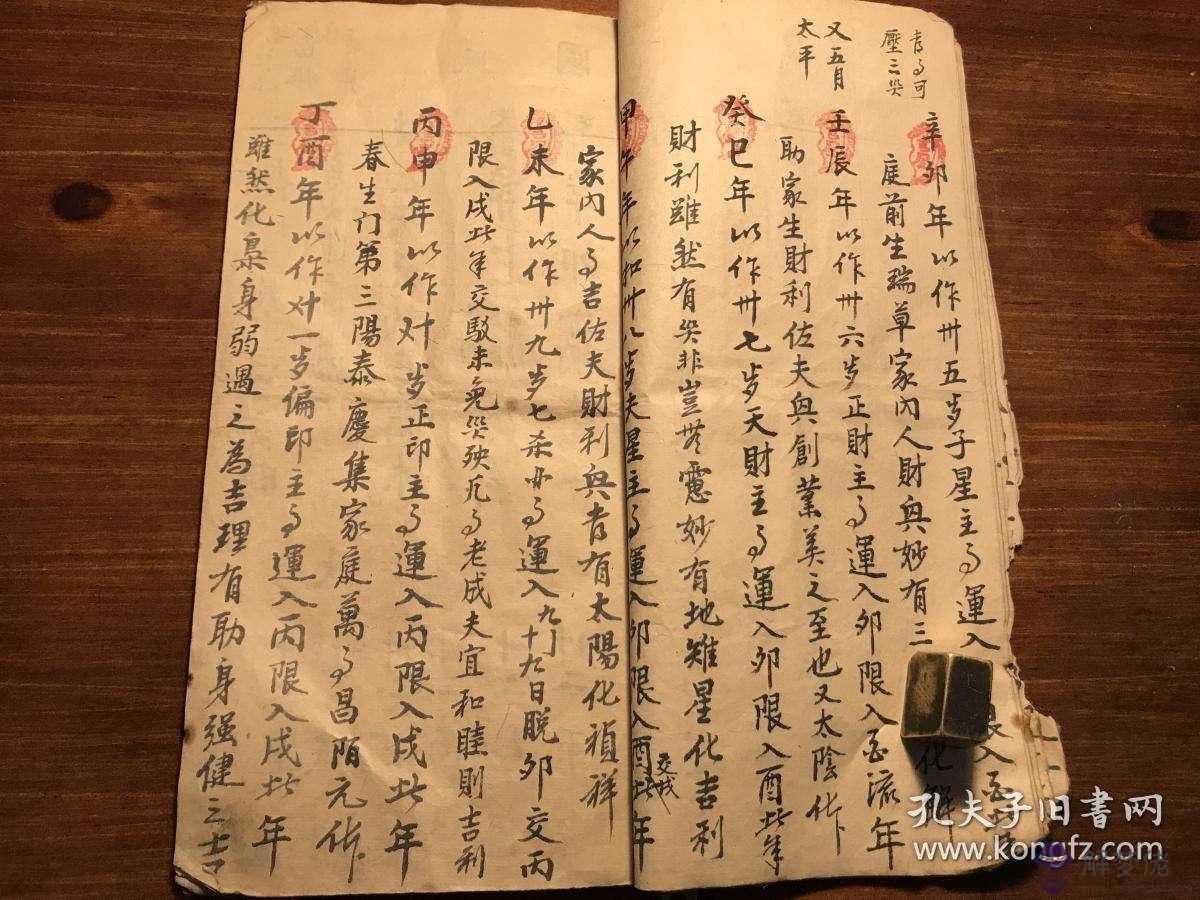 喜可
壓三災
又五月
太平
辛卯年以作卅五岁子星主運入
庭前生瑞草家內人財與妙有三化解
壬辰年以作卅六岁正財主运運入卯限入酉流年
助家生財利佐夫與創業美之至也又太陰作
癸巳年以作卅七岁天財主運入卯限入酉此年
財利雖然有災非豈無慮妙有地雉星化吉利
甲午年以和卅八岁夫星主運入卯限入酉此年
交戌
家內人吉佐夫財利與有太陽化禎祥
乙未年以作卅九岁七杀运入九月十九日脫卯交丙
限入戌此年交駁未免災殃凡老成夫宜和睦則吉利
丙申年以作卌岁正印主運入丙限入戌此年
春生门第三陽泰慶集家庭萬昌陌元作
丁酉年以作卌一岁偏印主運入丙限入戌此年
雖然化梟身弱遇之為吉理有助身强健之
孔夫子旧書网
www.kongfz.com
解梦佬